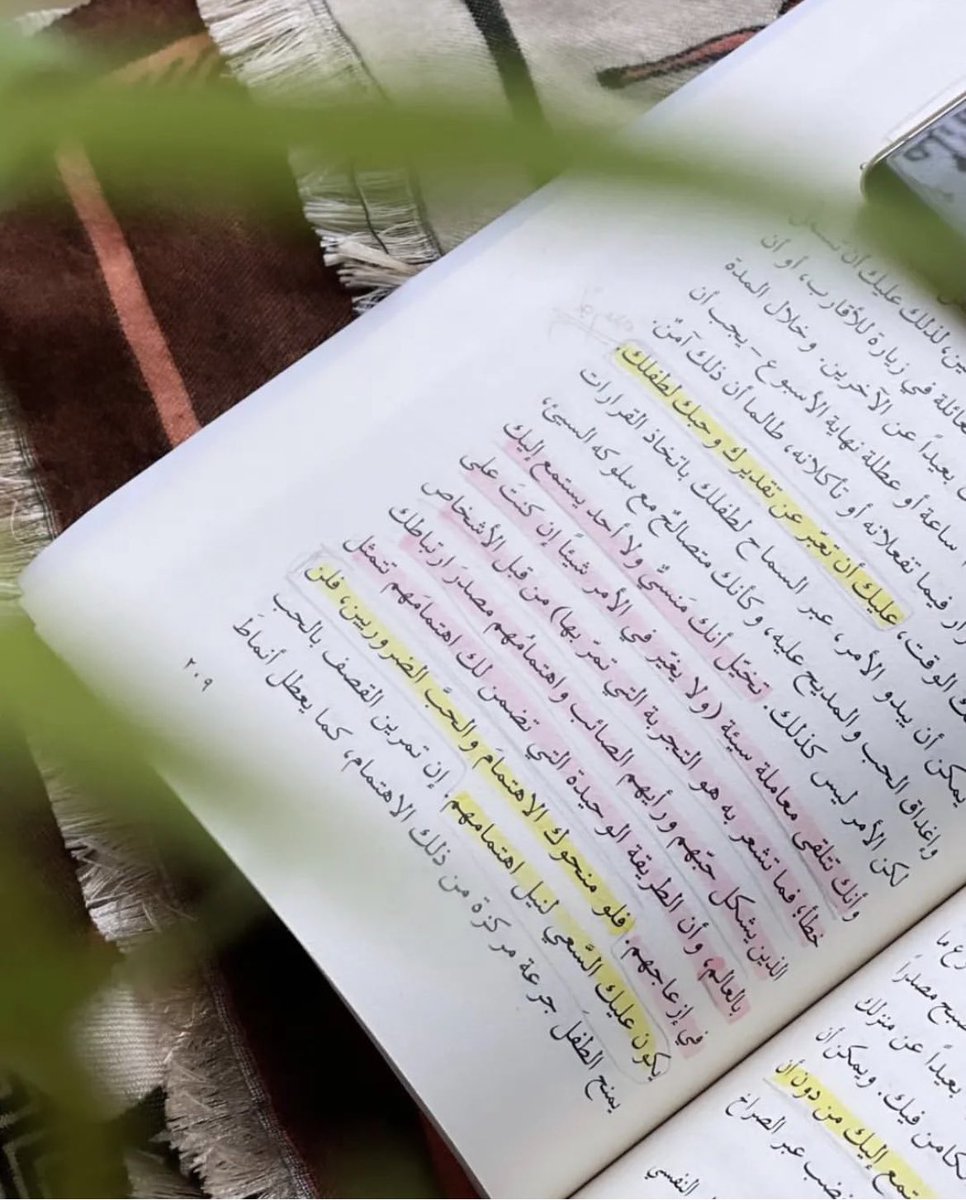 ين، لذلك عليك أن
عائلة في زيارة للأقارب، أو أن
بعيداً عن الآخرين. وخلال المدة
ساعة أو عطلة نهاية الأسبوع – يجب أن
رار فيما تفعلانه أو تأكلانه، طالما أن ذلك آمنٌ.
الوقت، عليك أن تعبّر عن تقديرك وحبك لطفلك.
يمكن أن يبدو الأمر، عبر السماح لطفلك باتخاذ القرارات
وإغداق الحب والمديح عليه، وكأنك متصالحٌ مع سلوكه السيئ،
لكن الأمر ليس كذلك. تخيّل أنك مَنسيٌّ ولا أحد يستمع إليك
وأنك تتلقى معاملة سيئة (ولا يغيّر في الأمر شيئاً إن كنتَ على
خطأ؛ فما تشعر به هو التجربة التي تمرّ بها) من قبل الأشخاص
الذين يشكل حبّهم ورأيهم الصائب واهتمامُهم مصدرَ ارتباطك
بالعالم، وأن الطريقة الوحيدة التي تضمن لك اهتمامَهم تتمثل
في إزعاجهم. فلو منحوك الاهتمامَ والحبَّ الضروريين، فلن
يكون عليك السَّعي لنيل اهتمامهم. إن تمرين القصف بالحب
يمنح الطفلَ جرعة مركزة من ذلك الاهتمام، كما يعطل أنماطَ
٢٠٩
ع ما
صبح مصدراً
بعيداً عن منزلك
كامن فيك. ويمكن أن
إليك من دون أن
ضب عبر الصراخ
النفسي